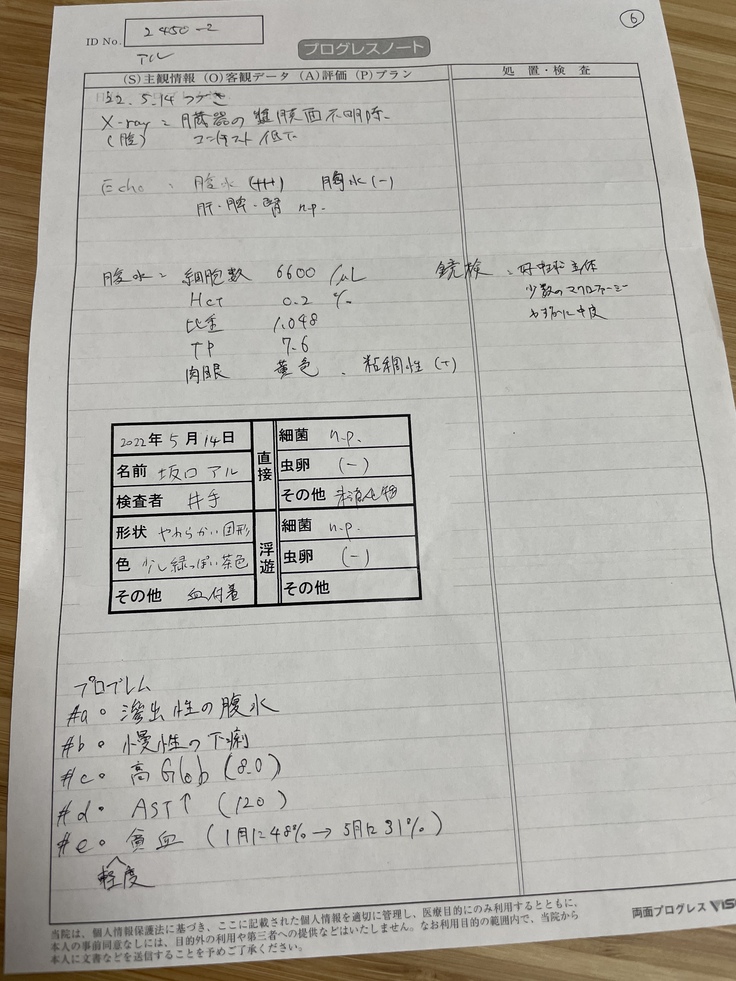 ⑥
ID No. 2450-2
アル
プログレスノート
(S)主観情報 (O)客観データ (A)評価 (P)プラン
処置・検査
22.5.14 つづき
X-ray: 臓器の漿膜面不明瞭.
(腹) コントラスト低下
Echo: 腹水(+++) 胸水(-)
肝・脾・腎 n.p.
腹水: 細胞数 6600 /μL 鏡検: 好中球主体
Hct 0.2 % 少数のマクロファージ
比重 1.048
TP 7.6
肉眼 黄色、粘稠性(+)
2022年5月14日 直接 細菌 n.p.
名前 坂口アル 虫卵 (-)
検査者 井手 その他 未消化物
形状 やわらかい固形 浮遊 細菌 n.p.
色 少し緑っぽい茶色 虫卵 (-)
その他 血付着 その他
プロブレム
#a。滲出性の腹水
#b。慢性の下痢
#c。高Glob(8.0)
#d。AST↑(120)
#e。貧血(1月に48%→5月に31%)
軽度
当院は、個人情報保護法に基づき、ここに記載された個人情報を適切に管理し、医療目的にのみ利用するとともに、
本人の事前同意なしには、目的外の利用や第三者への提供などはいたしません。なお利用目的の範囲内で、当院から
本人に文書などを送信することを予めご了承ください。
両面プログレス